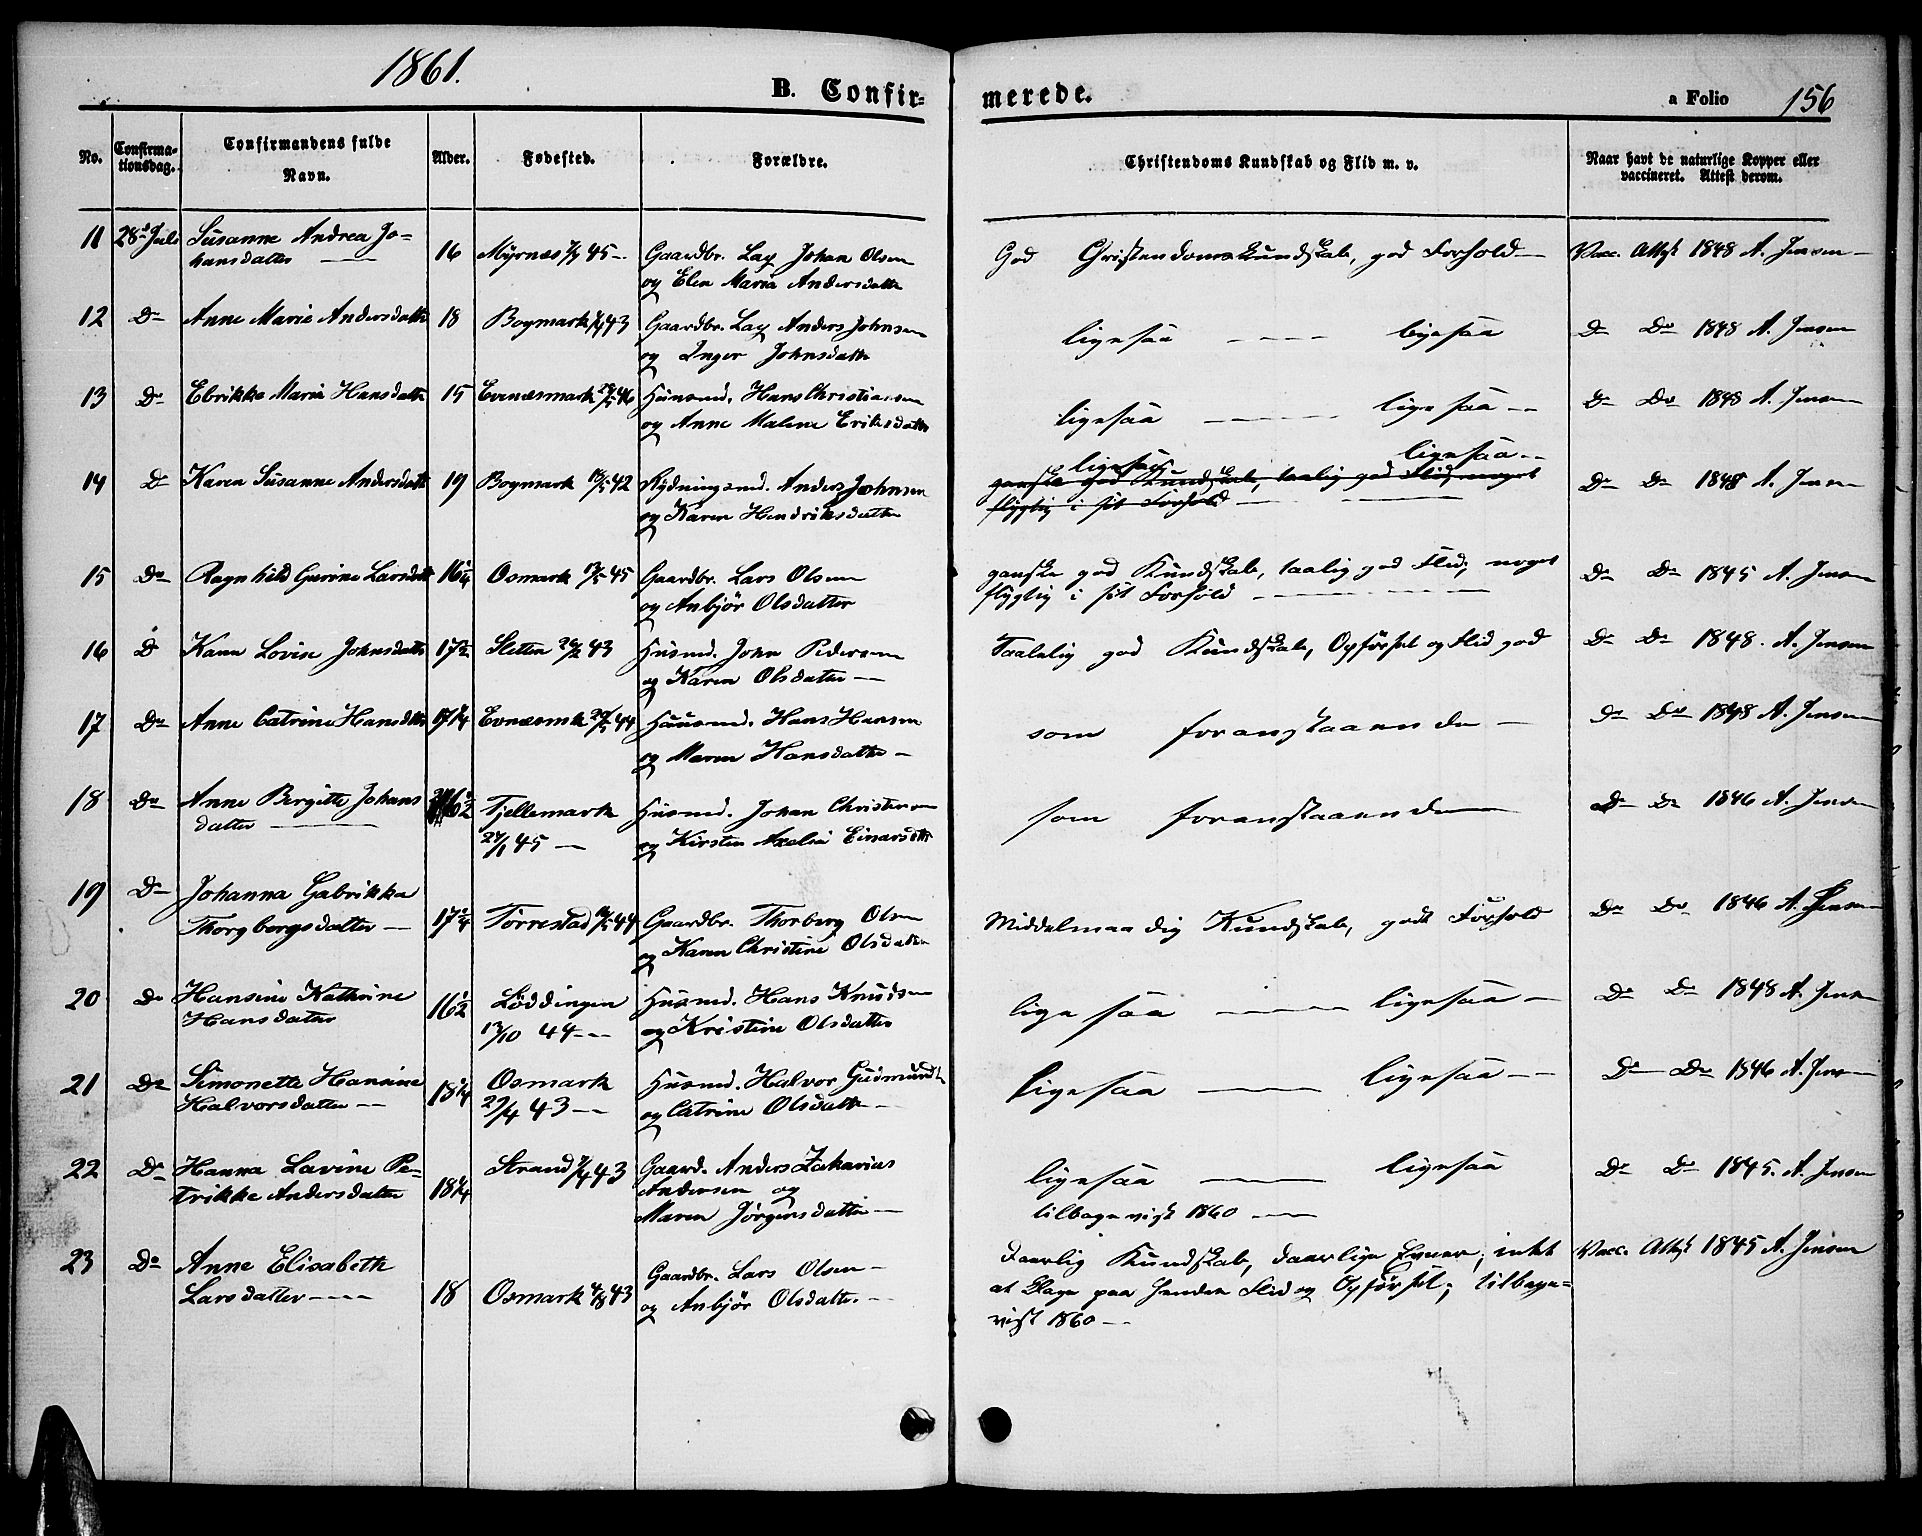 1861.
B. Confir-
merede.
a Folio 156
No.
Confirma-
tionsdag.
Confirmandens fulde
Navn.
Alder.
Fødested.
Forældre.
Christendoms Kundskab og Flid m. v.
Naar havt de naturlige Kopper eller
vaccineret. Attest derom.
11 28de Juli Susanne Andrea Jo-
hansdatter 16 Myrnes 45 Gaardbr. Lay Johan Olsen
og Elen Maria Andersdatter
God Christendomskundskab, god Forhold Vacc. Attest 1848 A. Jensen
12 Do Anne Marie Andersdatter 18 Bogmark 43 Gaardbr. Lay Anders Johnsen
og Inger Johnsdatter
ligesaa ligesaa Do Do 1848 A. Jensen
13 Do Ebrikke Maria Hansdatter 15 Evenesmark 46 Husmd. Hans Christiansen
og Anne Malene Eriksdatter
ligesaa ligesaa Do Do 1848 A. Jensen
14 Do Karen Susanne Andersdatter 19 Bogmark 42 Rydningsmd. Anders Johnsen
og Karen Hendriksdatter
ligesaa ligesaa
ganske god Kundskab, taalig god Flid, noget
flygtig i sit Forhold
Do Do 1848 A. Jensen
15 Do Ragnhild Gurine Larsdatter 16 1/4 Osmark 45 Gaardbr. Lars Olsen
og Anbjør Olsdatter
ganske god Kundskab, taalig god Flid, noget
flygtig i sit Forhold
Do Do 1845 A. Jensen
16 Do Karen Lovise Johnsdatter 17 1/2 Sletten 43 Husmd. John Pedersen
og Karen Olsdatter
Taalelig god Kundskab, Opførsel og Flid god Do Do 1848. A. Jensen
17 Do Anne Catrine Hansdtr 17 1/4 Evenesmk 44 Huusmd. Hans Hansen
og Maren Hansdatter
som foranstaaende Do Do 1848 A. Jensen
18 Do Anne Bergitte Johans
datter 16 1/2 Fjellemark
27/1 45 Husmd. Johan Christensen
og Kirsten Axelia Einarsdtr
som foranstaaende Do Do 1846 A. Jensen
19 Do Johanna Gabrikka
Thorgbergsdatter 17 1/4 Tørrestad 44 Gaardbr. Thorberg Olsen
og Karen Christine Olsdatter
Middelmaadig Kundskab, godt Forhold Do Do 1846 A. Jensen
20 Do Hansine Kathrine
Hansdatter 16 1/2 Løddingen
13/10 44 Husmd. Hans Knudsen
og Kristine Olsdatter
ligesaa ligesaa Do Do 1848 A. Jensen
21 Do Simonette Hansine
Halvorsdatter 18 1/4 Osmark
29/4 43 Husmd. Halvor Gudmunds
og Catrine Olsdatter
ligesaa ligesaa Do Do 1846 A. Jensen
22 Do Hanna Lavine Pe-
trikke Andersdatter 18 1/4 Strand 43 Gaard. Anders Zakarias
Andersen og
Maren Jørgensdatter
ligesaa ligesaa
tilbagevist 1860
Do Do 1845. A. Jensen
23 Do Anne Elisabeth
Larsdatter 18 Osmark 43 Gaardbr. Lars Olsen
og Anbjør Olsdatter
daarlig Kundskab, daarlige Evner, intet
at klage paa hendes Flid og Opførsel; tilbage-
vist 1860
Vacc. Attest 1845 A. Jensen